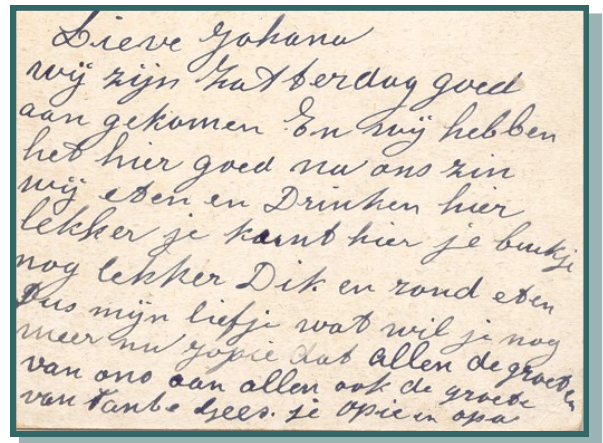 Lieve Johana
wij zijn Zatterdag goed
aan gekomen En wij hebben
het hier goed na ons zin
wij eten en Drinken hier
lekker je kannt hier je buikje
nog lekker Dik en rond eten
Dus mijn liefje wat wil je nog
meer nu Jopie dat allen de groeten
van ons aan allen ook de groete
van Tante Gees. je Opie en opa